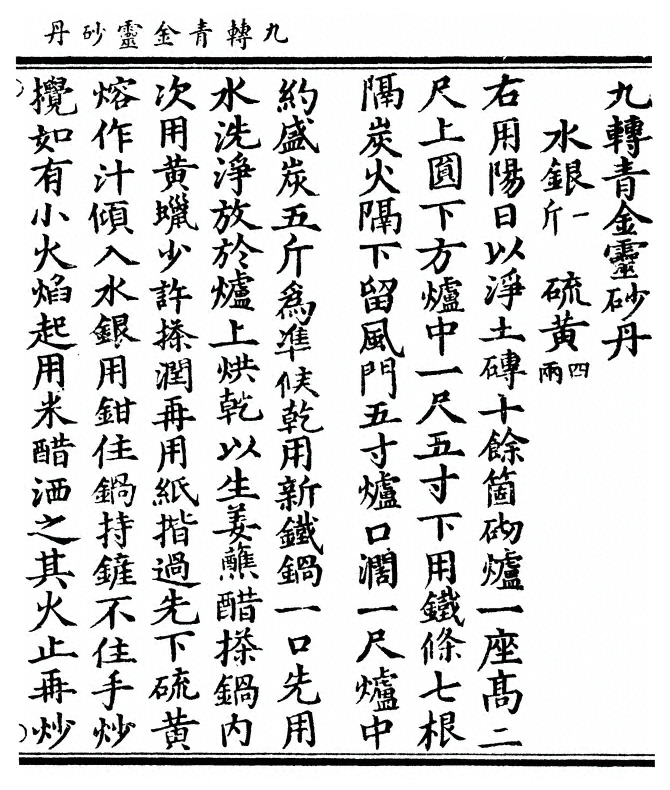 九轉青金靈砂丹
九轉青金靈砂丹
水銀一斤　硫黃四兩
右用陽日以淨土磚十餘箇砌爐一座高二
尺上圓下方爐中一尺五寸下用鐵條七根
隔炭火隔下留風門五寸爐口濶一尺爐中
約盛炭五斤爲準候乾用新鐵鍋一口先用
水洗淨放於爐上烘乾以生姜蘸醋搽鍋內
次用黃蠟少許搽潤再用紙揩過先下硫黃
熔作汁傾入水銀用鉗住鍋持鏟不住手炒
攪如有小火焰起用米醋洒之其火止再炒